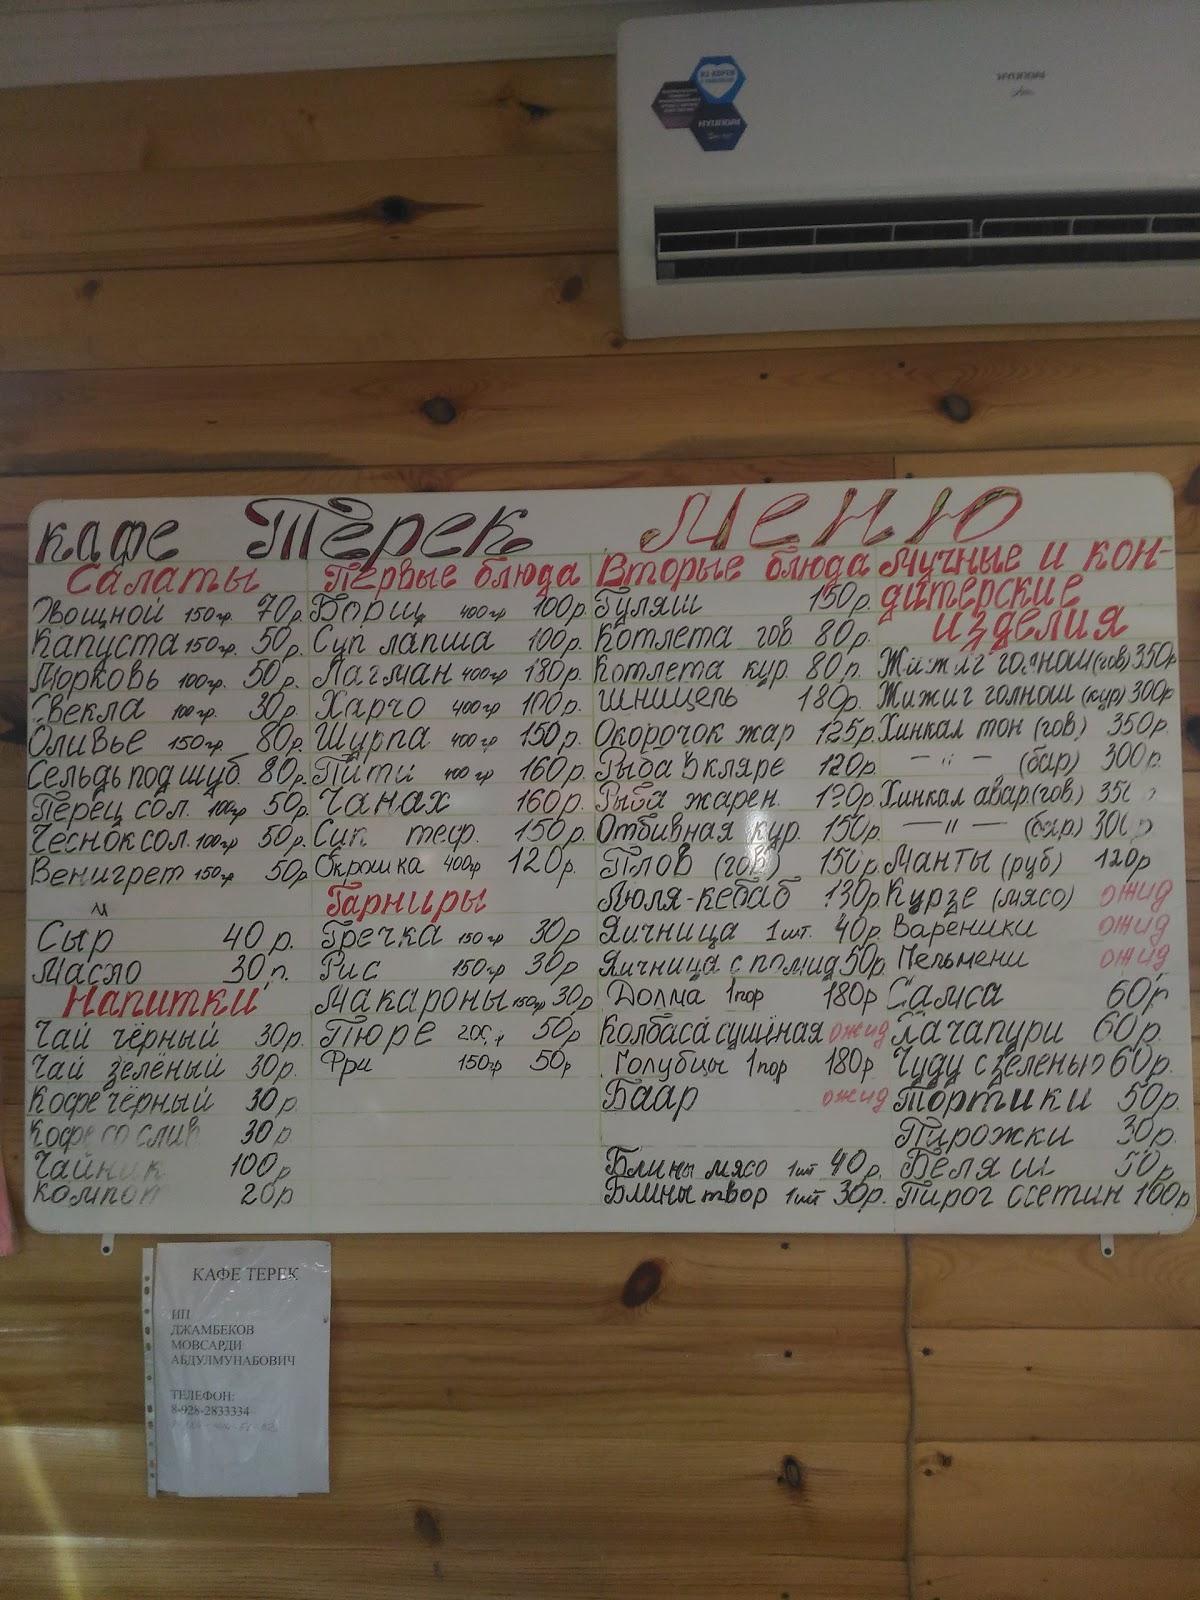 HYUNDAI
HYUNDAI
кафе Терек Меню
Салаты
Овощной 150гр 70р.
Капуста 150гр. 50р.
Морковь 100гр. 50р.
Свекла 100гр. 30р.
Оливье 150гр. 80р.
Сельдь под шуб. 80р.
Перец сол. 100гр 50р.
Чеснок сол. 100гр 50р.
Венигрет 150гр 50р
Сыр 40р.
Масло 30р.
Напитки
Чай чёрный 30р.
Чай зелёный 30р.
Кофе чёрный 30р.
Кофе со слив 30р.
Чайник 100р
Компот 20р
Первые блюда
Борщ 400гр 100р.
Суп лапша 100р.
Лагман 400гр 180р.
Харчо 400гр 100р.
Шурпа 400гр 150р.
Пити 400гр 160р.
Чанах 160р.
Суп теф. 150р.
Окрошка 400гр 120р.
Гарниры
Гречка 150гр 30р
Рис 150гр 30р
Макароны 150гр 30р
Пюре 50р
Фри 150гр 50р
Вторые блюда
Гуляш 150р.
Котлета гов 80р.
Котлета кур. 80р.
Шницель 180р.
Окорочок жар 125р.
Рыба в кляре 120р.
Рыба жарен.
Отбивная кур. 150р.
Плов (гов) 150р.
Люля-кебаб 130р.
Яичница 1шт. 40р.
Яичница с помид 50р.
Долма 1пор 180р
Колбаса сушёная ожид
Голубцы 1пор 180р.
Баар ожид
Блины мясо 1шт 40р.
Блины твор 1шт 30р.
Мучные и кон-
дитерские
изделия
Жижиг голнош (гов) 350р
Жижиг голнош (кур) 300р
Хинкал тон (гов). 350р.
— " — (бар) 300р.
Хинкал авар (гов)
— " — (бар)
Манты (руб) 120р
Курзе (мясо) ожид
Вареники ожид
Пельмени ожид
Самса 60р
Хачапури 60р.
Чуду с зеленью 60р.
Тортики 50р.
Пирожки 30р.
Беляши
Пирог осетин 100р
КАФЕ ТЕРЕК
ИП
ДЖАМБЕКОВ
МОВСАРДИ
АБДУЛМУНАБОВИЧ
ТЕЛЕФОН:
8-928-2833334